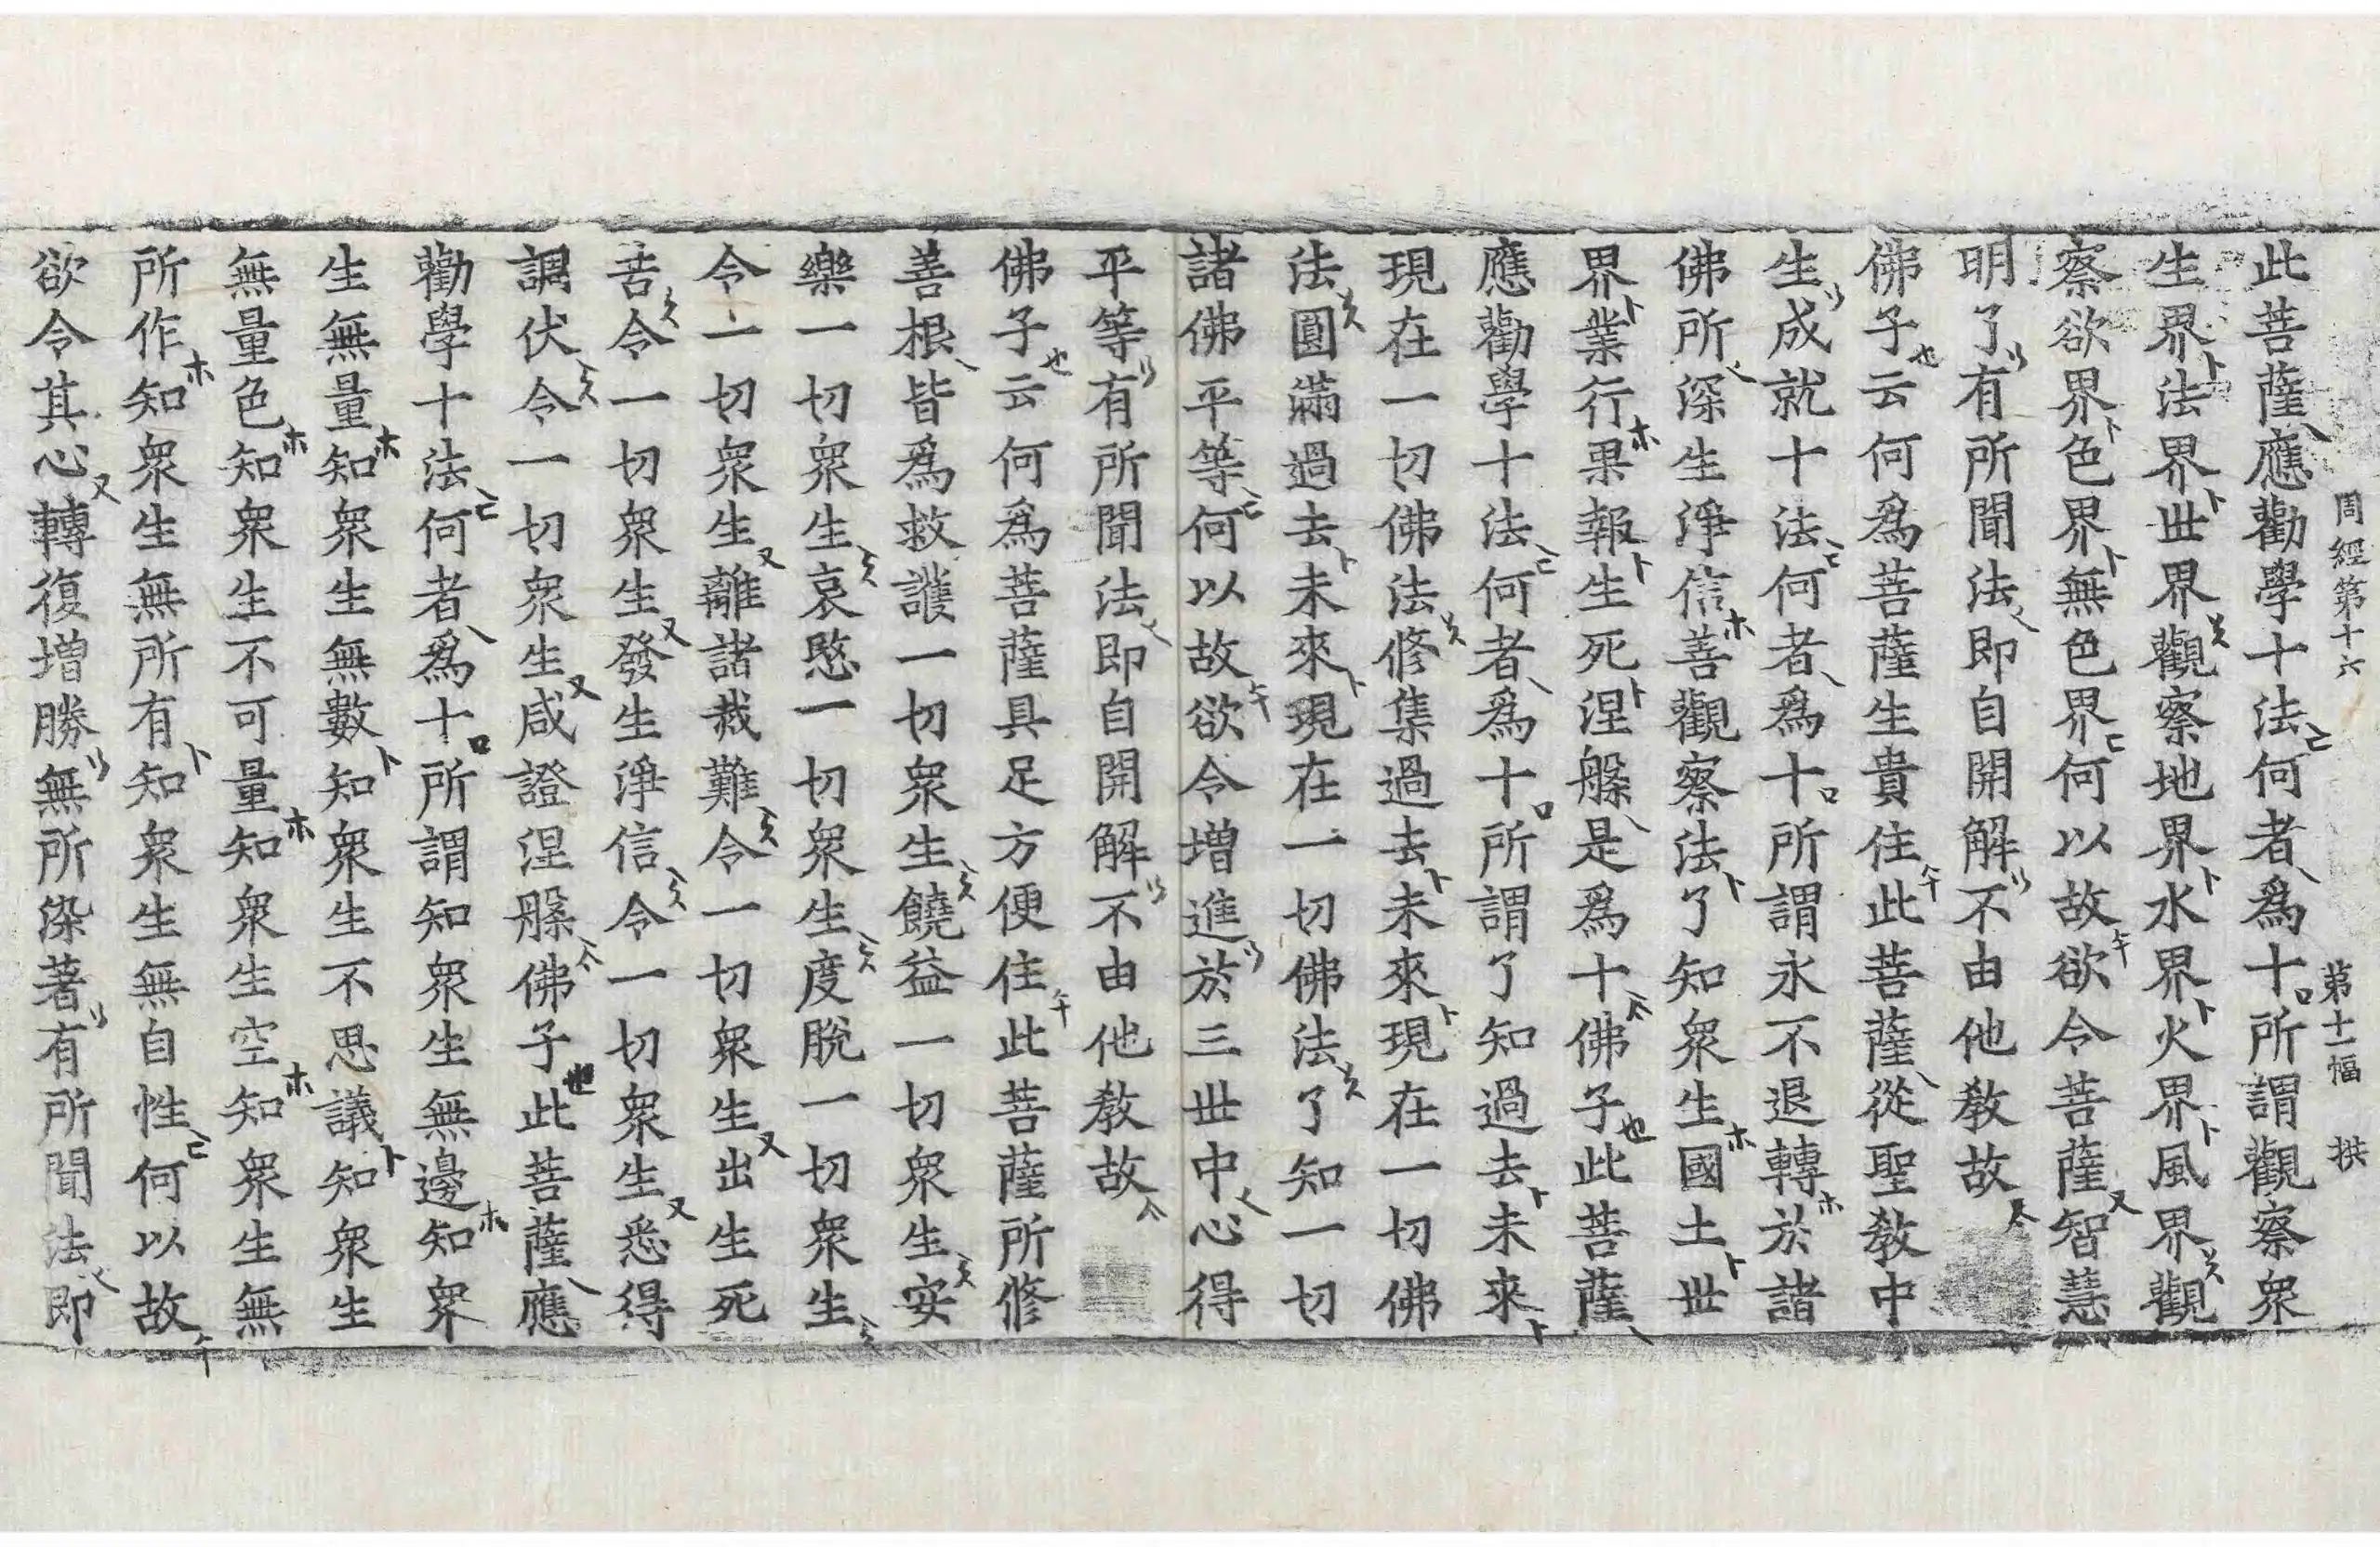 周經第十六　第十一幅　拱
此菩薩應勸學十法何者爲十所謂觀察衆
生界法界世界觀察地界水界火界風界觀
察欲界色界無色界何以故欲令菩薩智慧
明了有所聞法即自開解不由他教故
佛子云何爲菩薩生貴住此菩薩從聖教中
生成就十法何者爲十所謂永不退轉於諸
佛所深生淨信善觀察法了知衆生國土世
界業行果報生死涅槃是爲十佛子此菩薩
應勸學十法何者爲十所謂了知過去未來
現在一切佛法修集過去未來現在一切佛
法圓滿過去未來現在一切佛法了知一切
諸佛平等何以故欲令增進於三世中心得
平等有所聞法即自開解不由他教故
佛子云何爲菩薩具足方便住此菩薩所修
善根皆爲救護一切衆生饒益一切衆生安
樂一切衆生哀愍一切衆生度脫一切衆生
令一切衆生離諸裁難令一切衆生出生死
苦令一切衆生發生淨信令一切衆生悉得
調伏令一切衆生咸證涅槃佛子此菩薩應
勸學十法何者爲十所謂知衆生無邊知衆
生無量知衆生無數知衆生不思議知衆生
無量色知衆生不可量知衆生空知衆生無
所作知衆生無所有知衆生無自性何以故
欲令其心轉復增勝無所染著有所聞法即